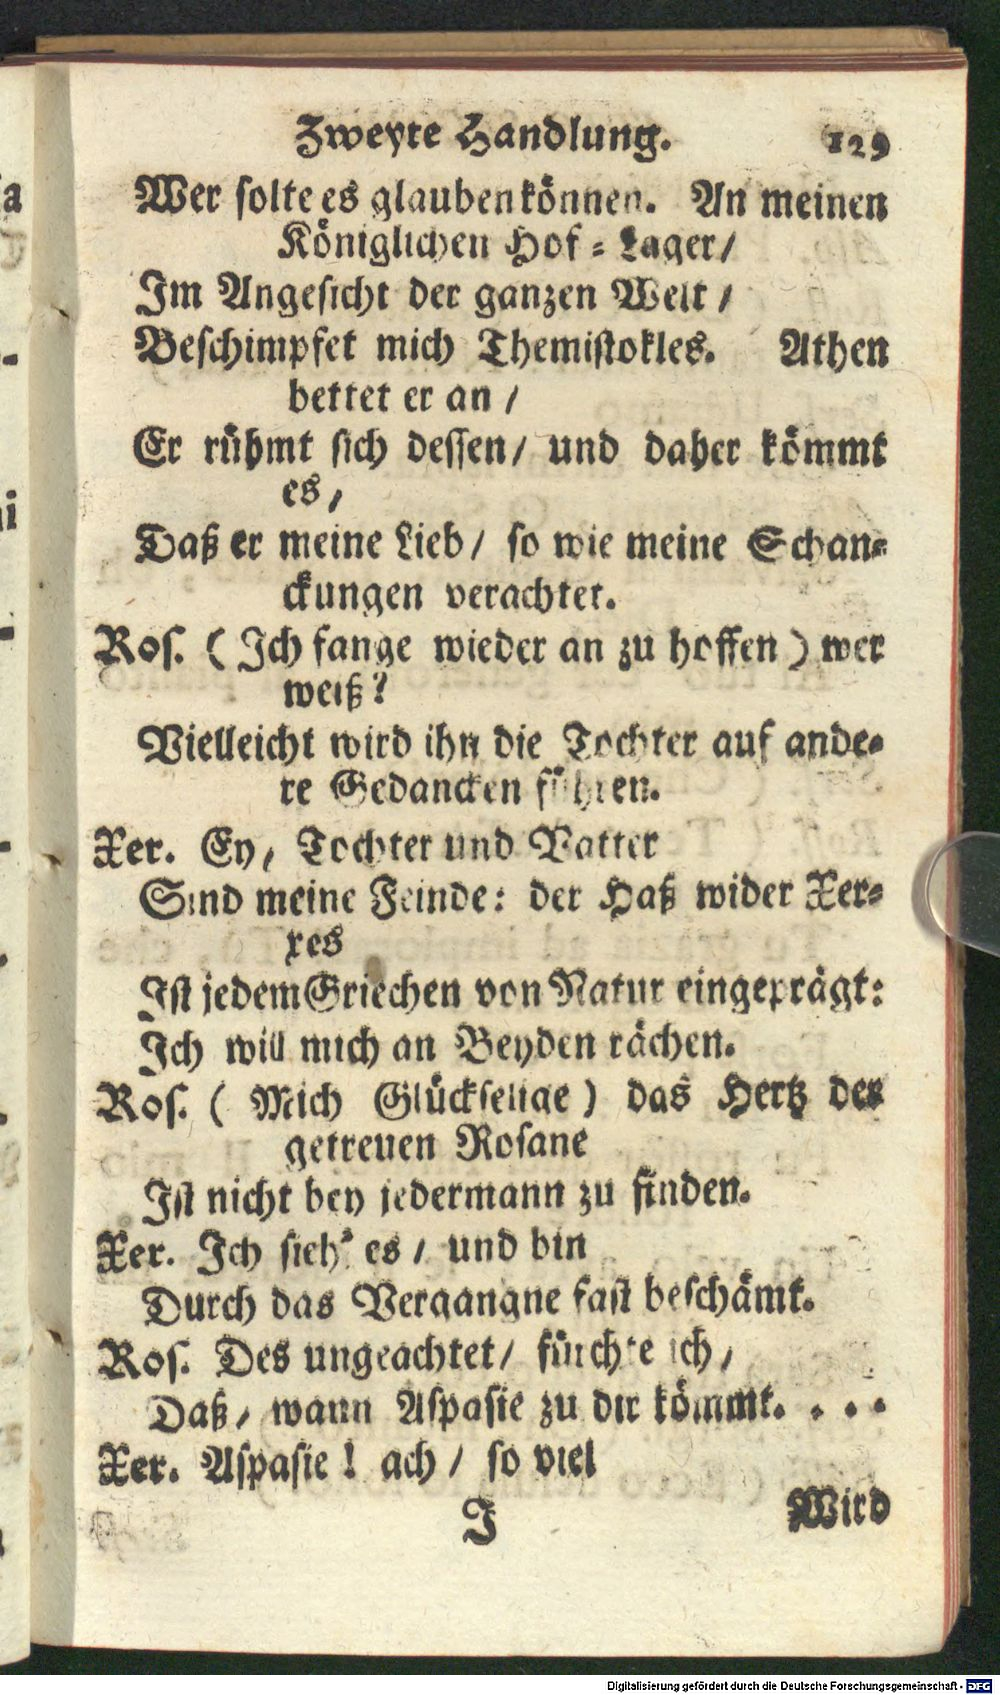 Zweyte Handlung. 129
Wer solte es glauben können. An meinen
Königlichen Hof-Lager/
Im Angesicht der ganzen Welt/
Beschimpfet mich Themistokles. Athen
bettet er an/
Er rühmt sich dessen/ und daher kömmt
es/
Daß er meine Lieb/ so wie meine Schan-
ckungen verachtet.
Ros. (Ich fange wieder an zu hoffen) wer
weiß?
Vielleicht wird ihn die Tochter auf ande-
re Gedancken führen.
Xer. Ey/ Tochter und Vatter
Sind meine Feinde: der Haß wider Xer-
xes
Ist jedem Griechen von Natur eingeprägt:
Ich will mich an Beyden rächen.
Ros. ( Mich Glückselige) das Hertz der
getreuen Rosane
Ist nicht bey jedermann zu finden.
Xer. Ich sieh' es/ und bin
Durch das Vergangne fast beschämt.
Ros. Des ungeachtet/ fürchte ich/
Daß/ wann Aspasie zu dir kömmt. . . .
Xer. Aspasie! ach/ so viel
I Wird
Digitalisierung gefördert durch die Deutsche Forschungsgemeinschaft - DFG